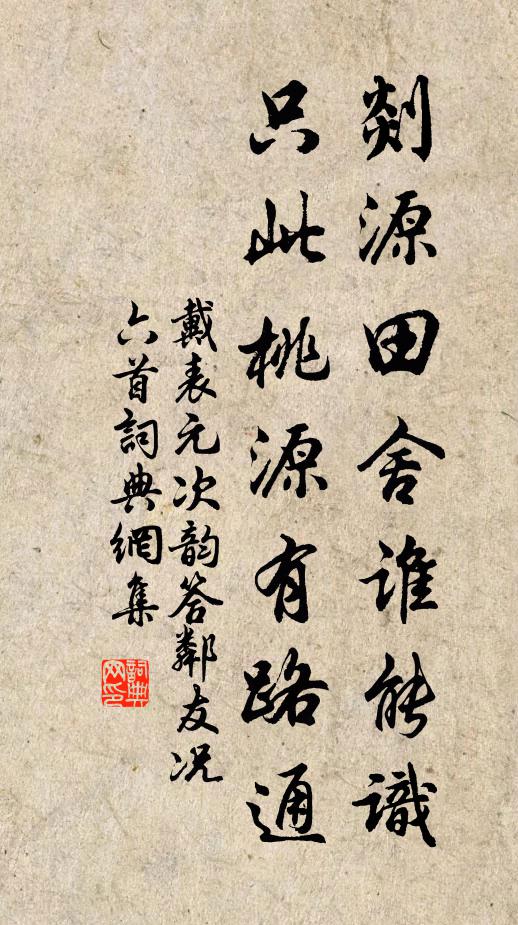 剡源田舍谁能識
只此桃源有路通
戴表元次韵答鄰友况
六首詞典網集
詞典网印